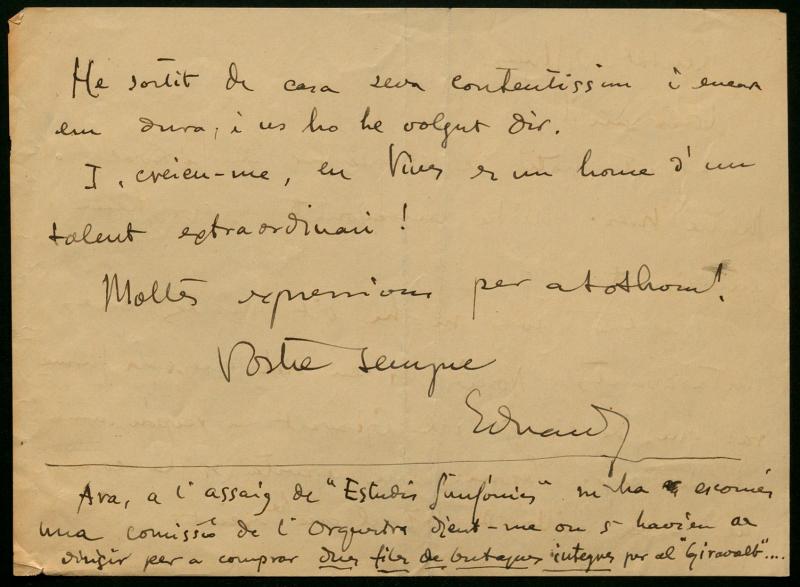 He sortit de casa seva contentissim i encar
em dura, i us ho he volgut dir.
I, creieu-me, en Vives es un home d'un
talent extraordinari!
Moltes expressions per a tothom!
Vostre sempre
Eduard
Ara, a l'assaig de "Estudis Simfònics" m'ha escomès
una comissió de l'Orquestra dient-me on s'havien de
dirigir per a comprar dues files de butaques integres per al "Giravolt"....